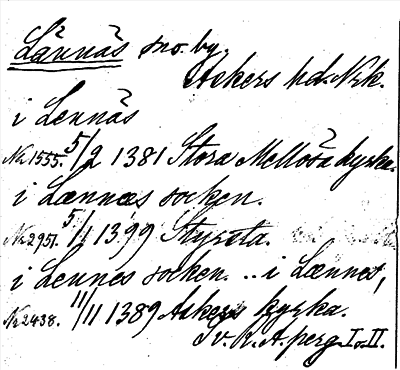 Lännäs sno. by.
Askers hd. Nrk.
i Lennäs
No 1555. 5/2 1381 Stora Mellösa kyrka.
i Lænnæs socken.
No 2951. 5/11 1399 Styrsta.
i Lennes socken. .. i Lænnes,
No 2438. 11/11 1389 Askers kyrka.
Sv. R. A. perg. I o. II.